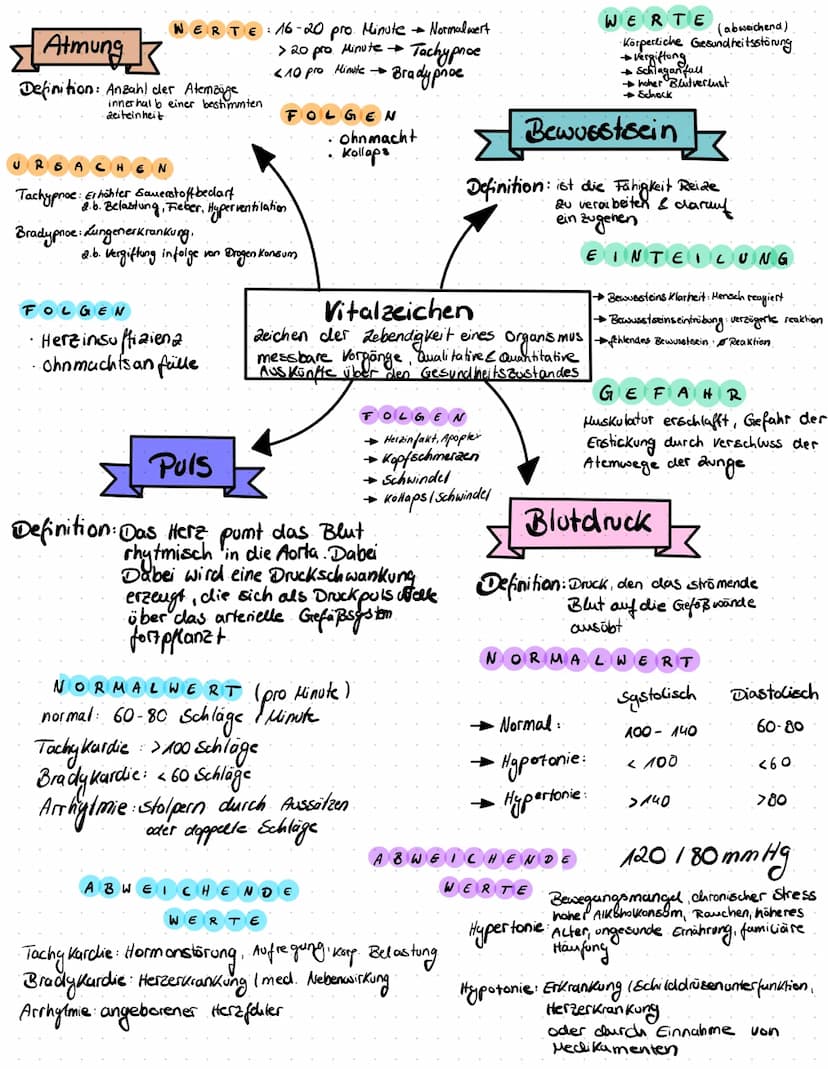 Atmung
WERTE: 16-20 pro Minute → Normalwert
> 20 pro Minute → Tachypnoe
< 10 pro Minute → Bradypnoe
Definition: Anzahl der Atemzüge
innerhalb einer bestimmten
Zeiteinheit
FOLGEN
· Ohnmacht
· Kollaps
URSACHEN
Tachypnoe: Erhöhter Sauerstoffbedarf
z.b. Belastung, Fieber, Hyperventilation
Bradypnoe: Lungenerkrankung,
z.b. Vergiftung infolge von Drogenkonsum
WERTE (abweichend)
Körperliche Gesundheitsstörung
→ Vergiftung
→ Schlaganfall
→ hoher Blutverlust
→ Schock
Bewusstsein
Definition: ist die Fähigkeit Reize
zu verarbeiten & darauf
einzugehen
EINTEILUNG
→ Bewusstseins Klarheit: Mensch reagiert
→ Bewusstseinseintrübung: verzögerte reaktion
→ fehlendes Bewusstsein: Ø Reaktion
GEFAHR
Muskulatur erschlafft, Gefahr der
Erstickung durch Verschluss der
Atemwege der Zunge
Vitalzeichen
Zeichen der Lebendigkeit eines Organismus
messbare Vorgänge, Qualitative & Quantitative
Auskünfte über den Gesundheitszustandes
FOLGEN
· Herzinsuffizienz
· Ohnmachtsanfälle
Puls
Definition: Das Herz pumt das Blut
rhytmisch in die Aorta. Dabei
Dabei wird eine Druckschwankung
erzeugt, die sich als Druckpulswelle
über das arterielle Gefäßsystem
fortpflanzt
NORMALWERT (pro Minute)
normal: 60-80 Schläge / Minute
Tachykardie: >100 Schläge
Bradykardie: < 60 Schläge
Arrhytmie: stolpern durch Aussätzen
oder doppelte Schläge
ABWEICHENDE
WERTE
Tachykardie: Hormonstörung, Aufregung, körp. Belastung
Bradykardie: Herzerkrankung / med. Nebenwirkung
Arrhytmie: angeborener Herzfehler
FOLGEN
→ Herzinfakt, Apoplex
→ Kopfschmerzen
→ Schwindel
→ Kollaps / Schwindel
Blutdruck
Definition: Druck, den das strömende
Blut auf die Gefäßwände
ausübt
NORMALWERT
Systolisch Diastolisch
→ Normal: 100-140 60-80
→ Hypotonie: < 100 <60
→ Hypertonie: >140 >80
120 / 80 mmHg
ABWEICHENDE
WERTE
Hypertonie: Bewegungsmangel, chronischer Stress
hoher Alkoholkonsum, Rauchen, höheres
Alter, ungesunde Ernährung, familiäre
Häufung
Hypotonie: Erkrankung (Schilddrüsenunterfunktion,
Herzerkrankung
oder durch Einnahme von
Medikamenten